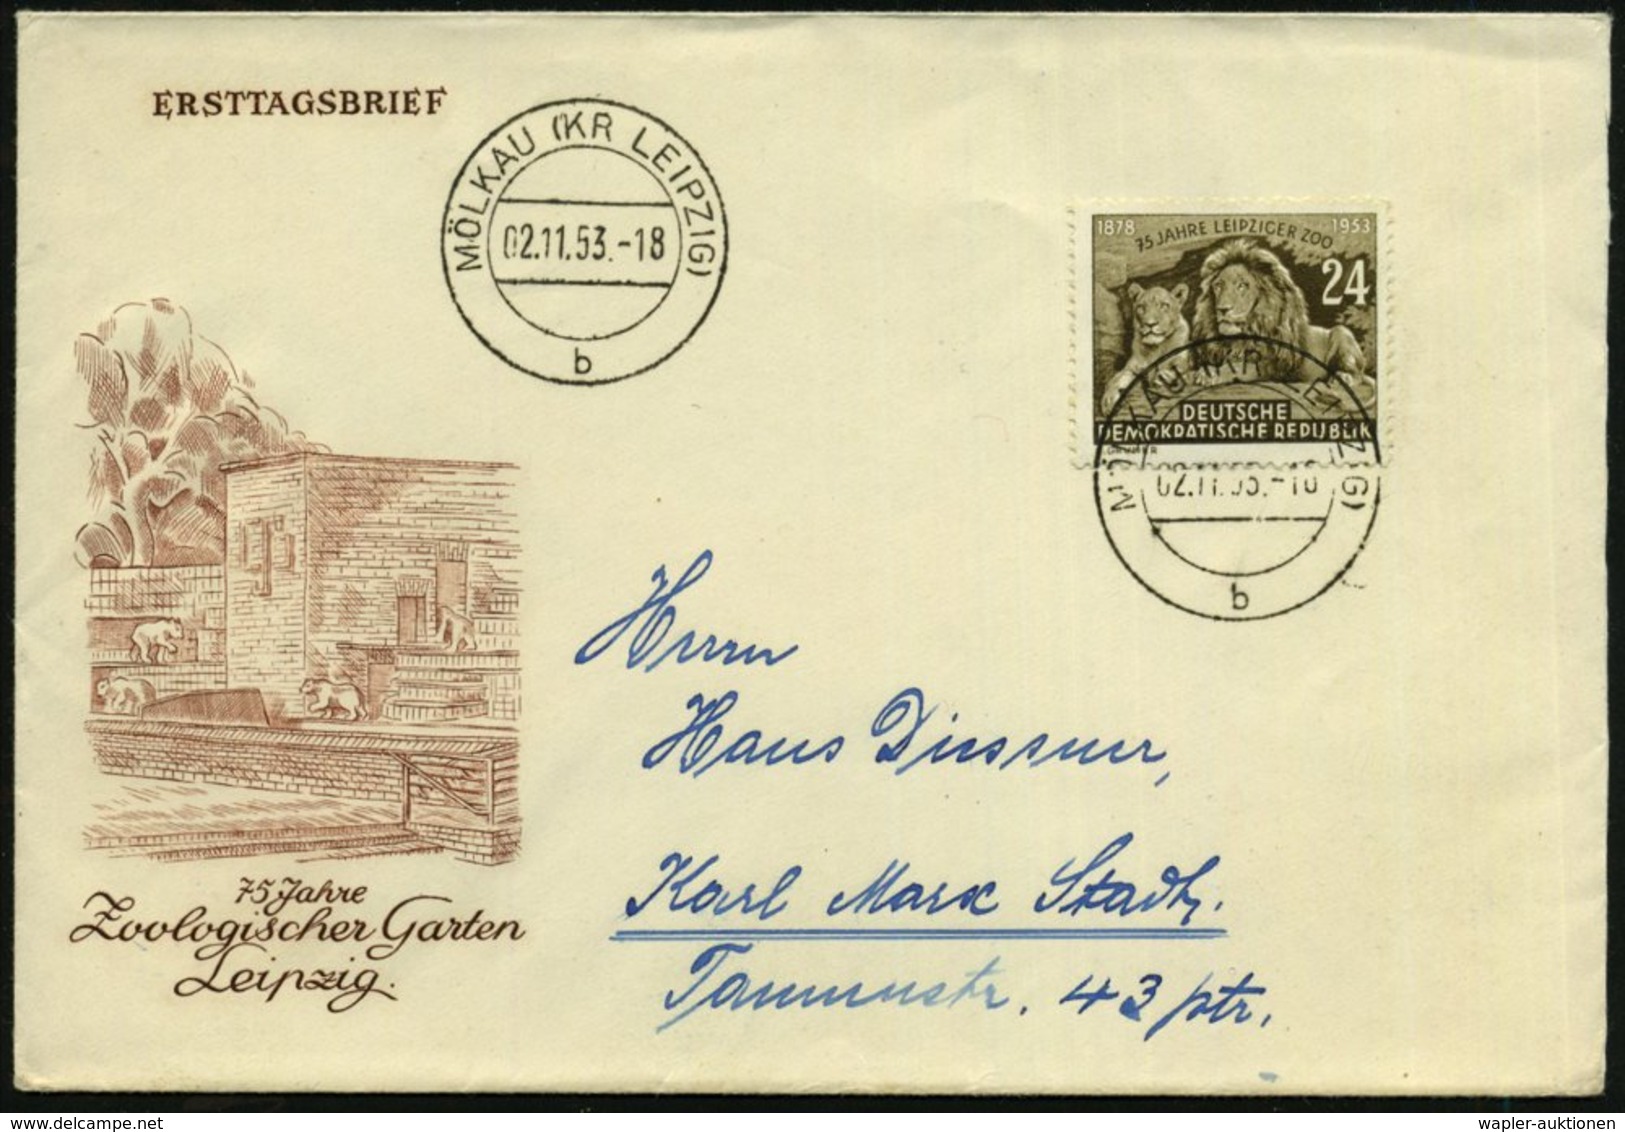 ERSTTAGSBRIEF
MÖLKAU (KR LEIPZIG)
02.11.53.-18
b
1878 1953
75 JAHRE LEIPZIGER ZOO
24
DEUTSCHE
DEMOKRATISCHE REPUBLIK
MÖLKAU (KR LEIPZIG)
02.11.53.-18
b
Herrn
Hans Diessner,
Karl Marx Stadt.
43 ptr.
75 Jahre
Zoologischer Garten
Leipzig.
wapler-auktionen